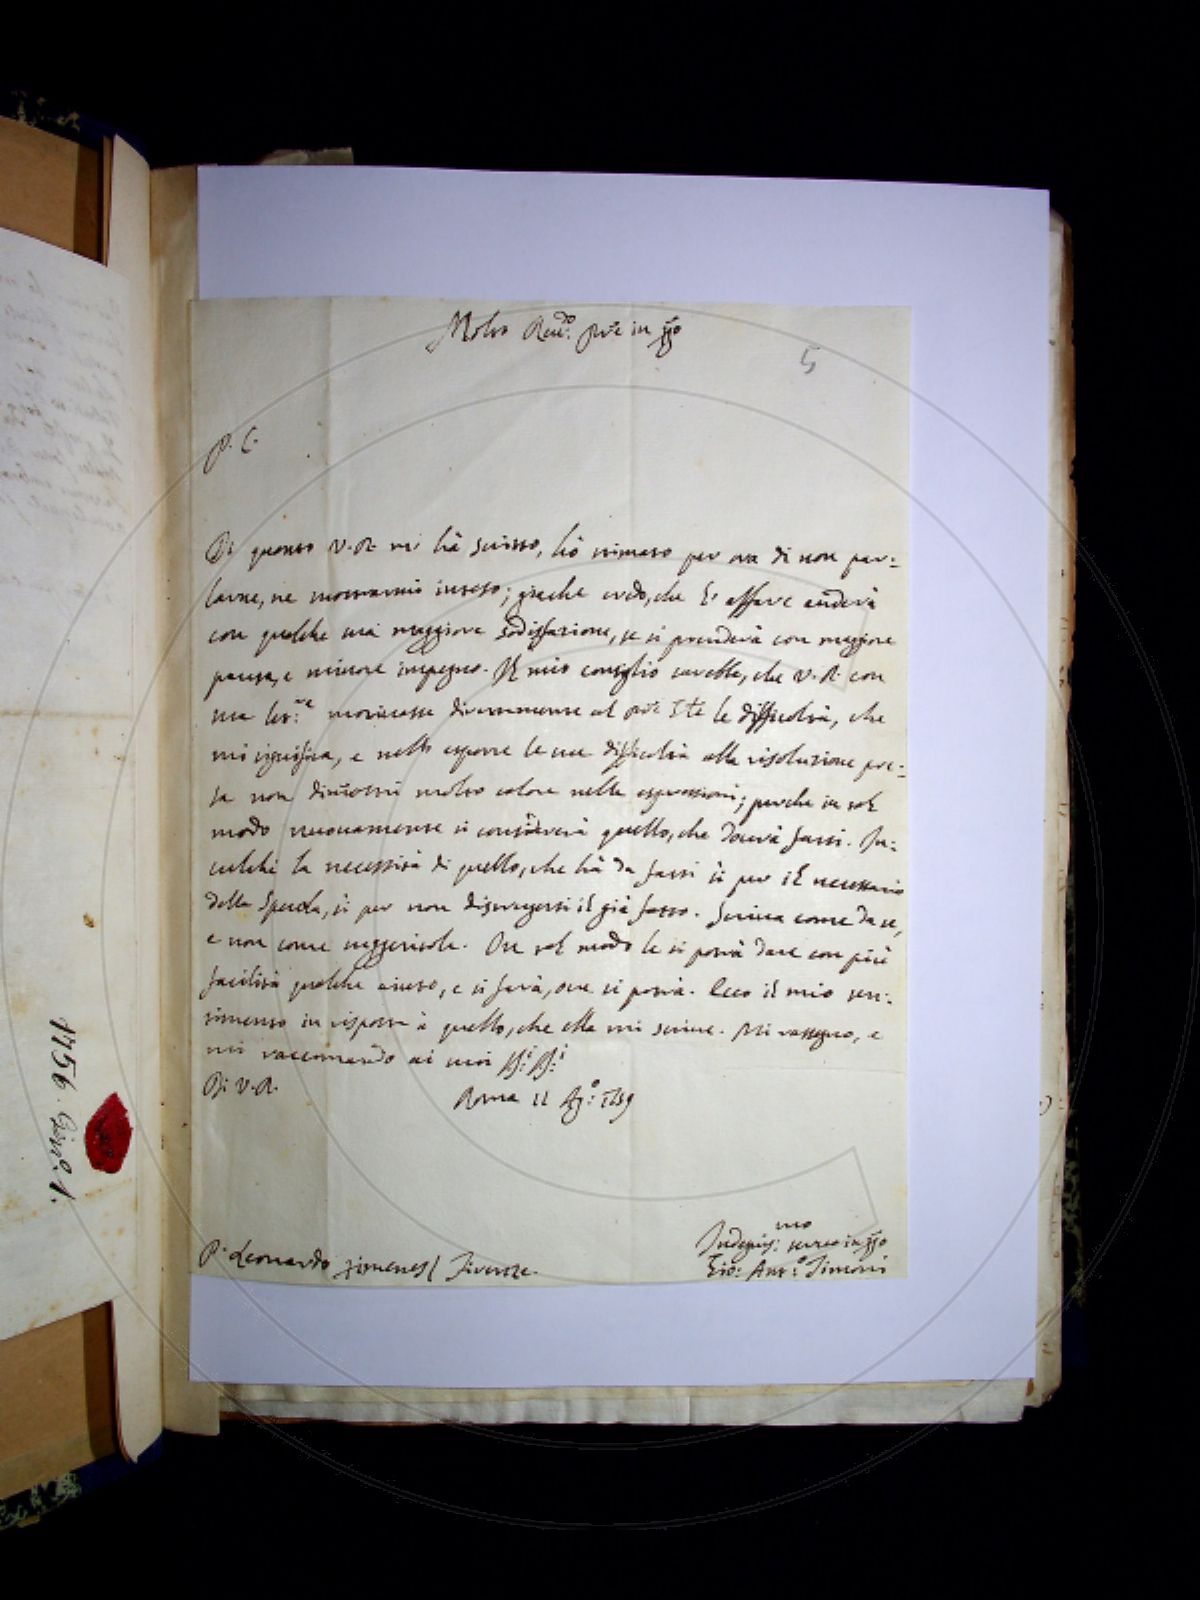 Molto Rev:do Pre in Xpo
5
P. C.
Di quanto V. R. mi hà scritto, hò stimato per ora di non par=
larne, ne mostrarmi inteso; giache credo, che l'affare anderà
con qualche sua maggiore sodisfazione, se si prenderà con maggiore
pausa, e minore impegno. Il mio consiglio sarebbe, che V. R. con
sua let:ra motivasse diversamente al Pre le difficoltà, che
mi significa, e nello esporre le sue difficoltà alla risoluzione pre=
sa non dimostri molto calore nelle espressioni; perche in tal
modo nuovamente si considererà quello, che dovrà farsi. In=
culchi la necessità di quello, che hà da farsi sì per il necessario
della Specola, sì per non distruggersi il già fatto. Scriva come da se,
e non come suggeritole. In tal modo le si potrà dare con più
facilità qualche aiuto, e si farà, ove si potrà. Ecco il mio sen=
timento in risposta à quello, che ella mi scrive. Mi rassegno, e
mi raccomando ai suoi SS:i SS:i
Di V. R.
Roma 11 Ag:o 1759
mo
Indegnis: servo in Xpo
P. Leonardo Ximenes / Firenze.
Gio: Ant:o Timoni
1756.